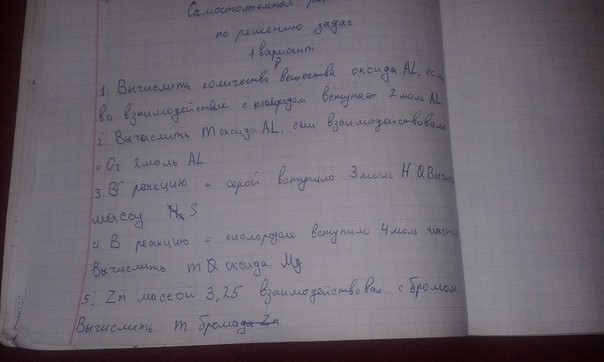 Самостоятельная
по решению задач
1 вариант
1. Вычислить количество вещества оксида AL, если
во взаимодействие с кислородом вступает 2 моль AL
2. Вычислить m оксида AL, если взаимодействовало
с O2 2 моль AL
3. В реакцию с серой вступило 3 моль H. Q Вычис
массу H2 S
4. В реакцию с кислородом вступило 4 моль
Вычислить m Q оксида Mg
5. Zn массой 3,25 взаимодействовал с бромом
Вычислить m бромада Zn